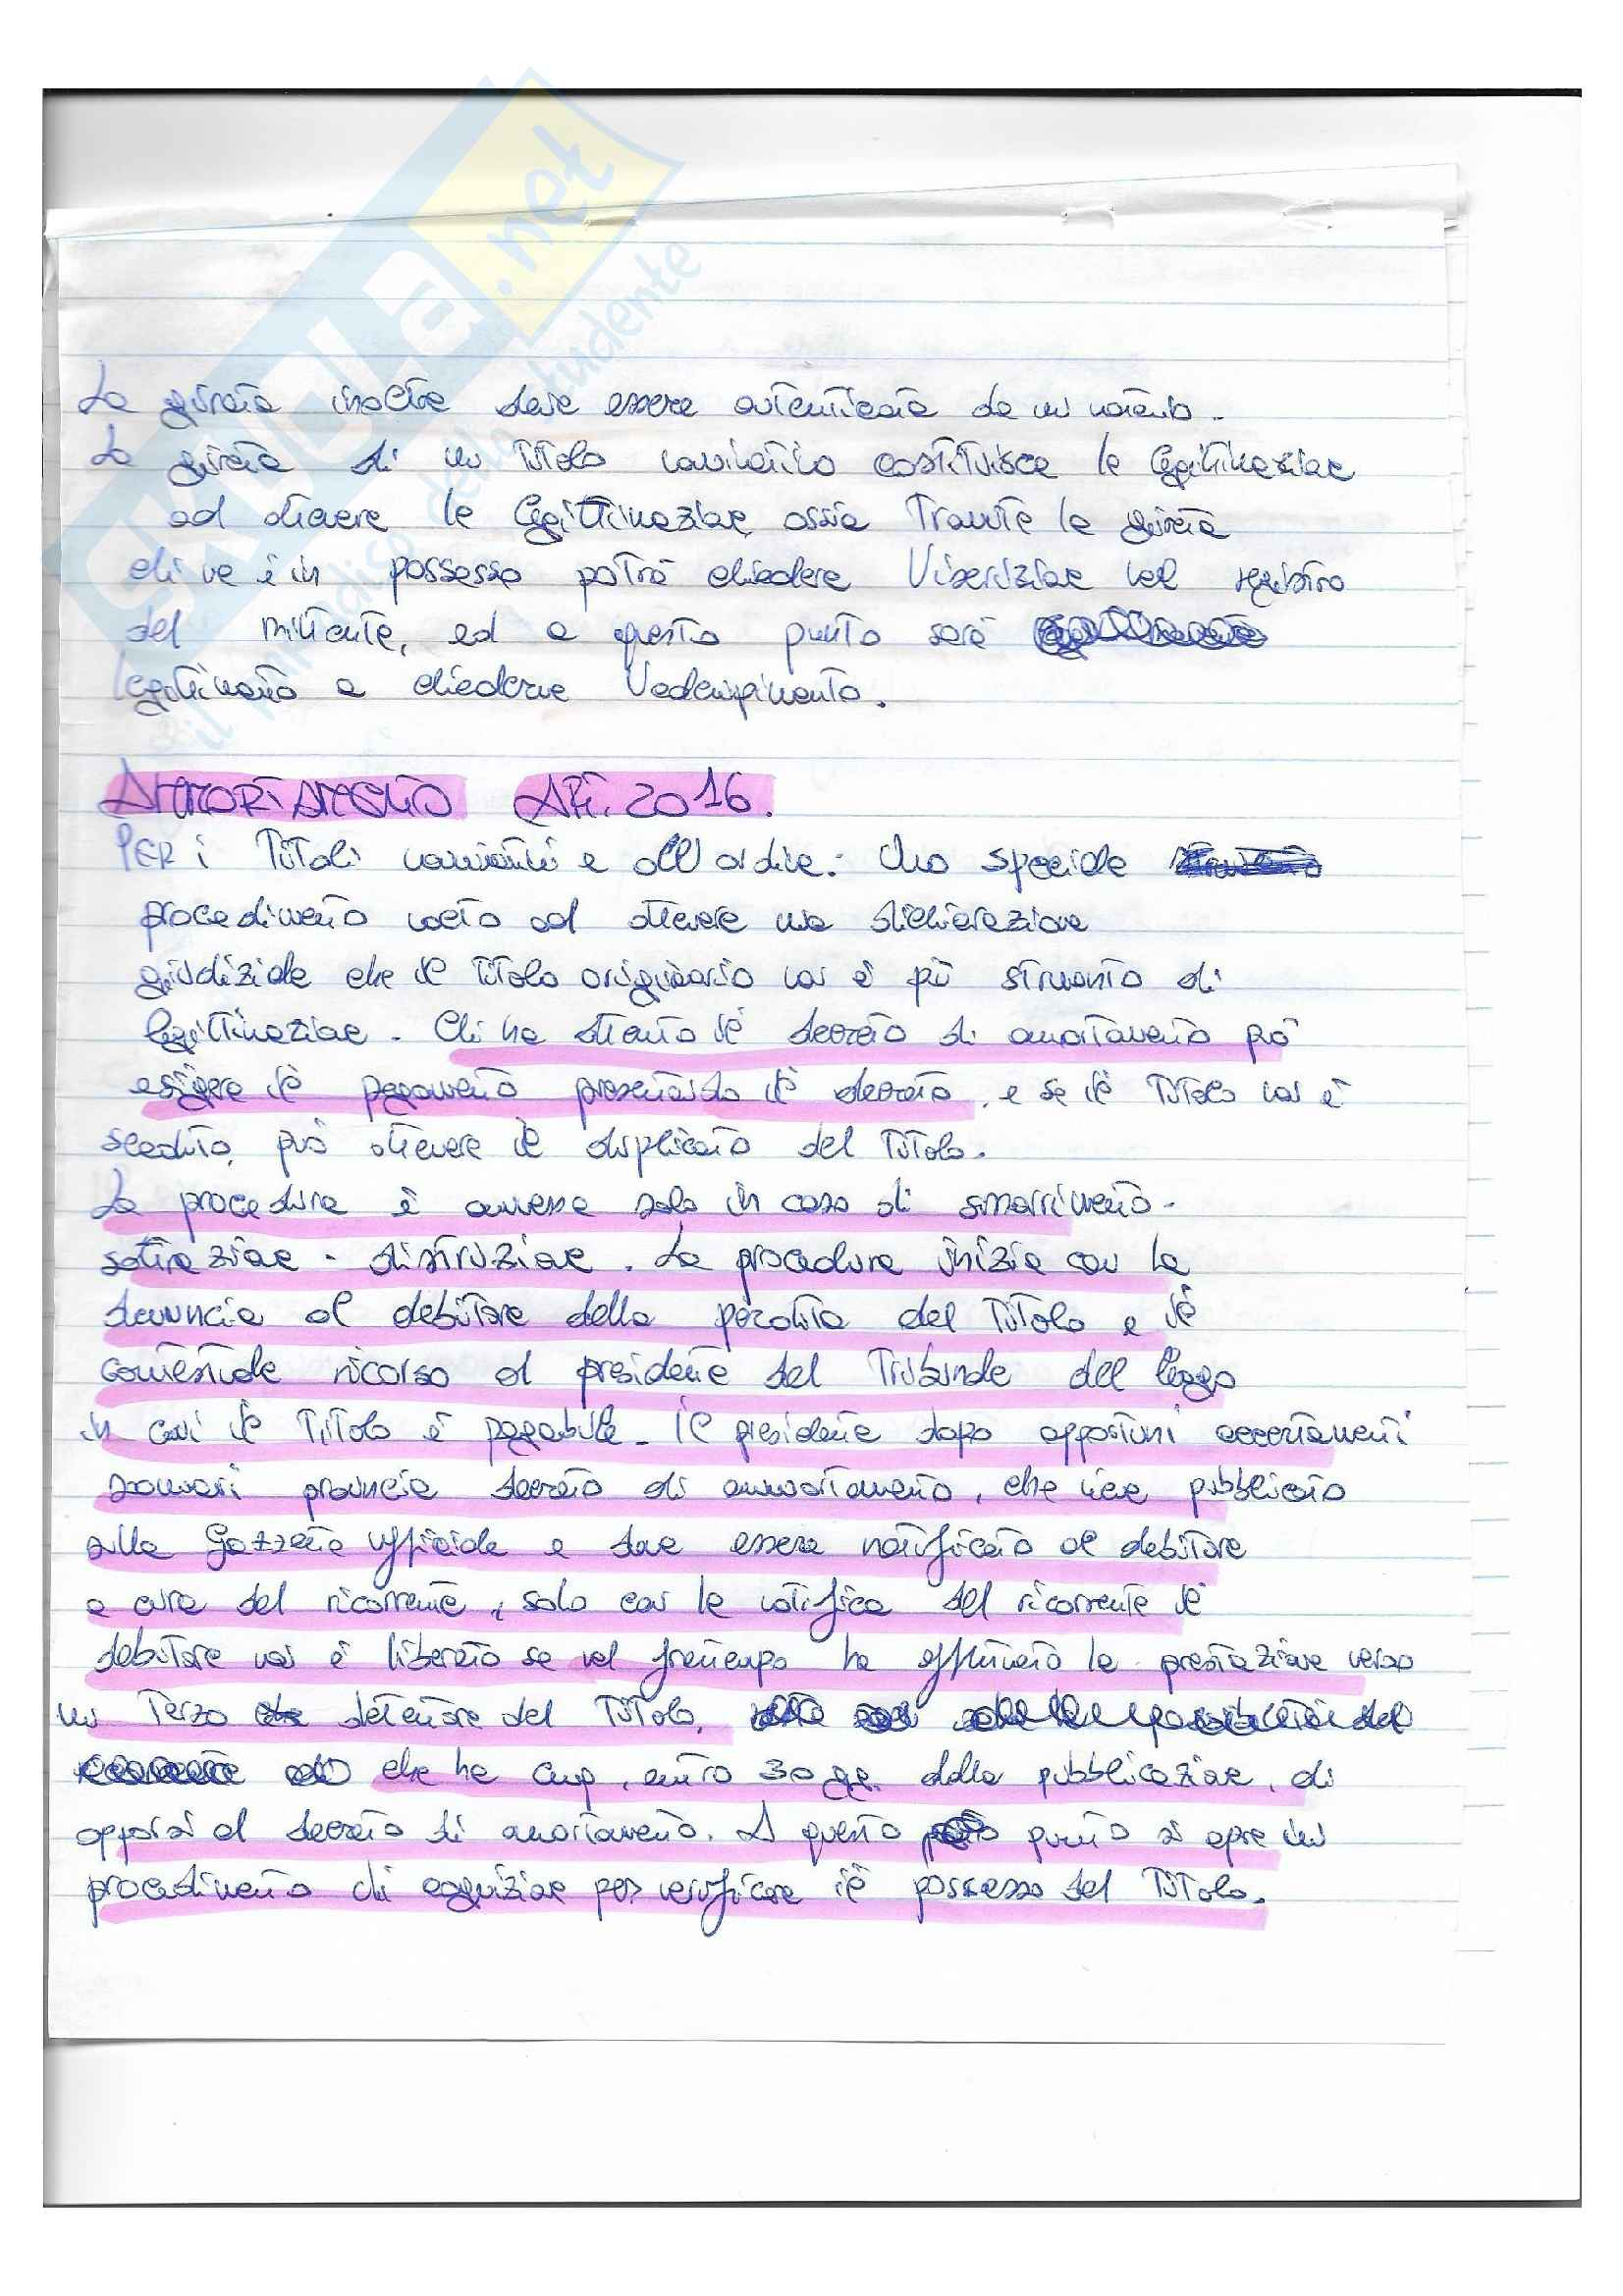 SKUOLA.net
il paradiso dello studente
La girata inoltre deve essere autenticata da un notaio.
La girata di un titolo nominativo costituisce la legittimazione
ad ottenere la legittimazione, ossia Tramite la girata
chi ne è in possesso potrà chiedere l'iscrizione nel registro
del mittente, ed a questo punto sarà
legittimato a chiederne l'adempimento.
AMMORTAMENTO ART. 2016.
PER i Titoli nominativi e all'ordine: Uno speciale
procedimento volto ad ottenere una dichiarazione
giudiziale che il Titolo originario non è più strumento di
legittimazione. Chi ha ottenuto il decreto di ammortamento può
esigere il pagamento presentando il decreto, e se il Titolo non è
scaduto, può ottenere il duplicato del Titolo.
La procedura è ammessa solo in caso di smarrimento -
sottrazione - distruzione. La procedura inizia con la
denuncia al debitore della perdita del Titolo e il
contestuale ricorso al presidente del Tribunale del luogo
in cui il Titolo è pagabile. Il presidente dopo opportuni accertamenti
sommari pronuncia decreto di ammortamento, che viene pubblicato
sulla Gazzetta ufficiale e deve essere notificato al debitore
a cura del ricorrente, solo con la notifica del ricorrente il
debitore non è liberato se nel frattempo ha effettuato la prestazione verso
un Terzo detentore del Titolo,
che ha entro 30 gg. dalla pubblicazione, di
opporsi al decreto di ammortamento. A questo punto si apre un
procedimento di cognizione per verificare il possesso del Titolo.